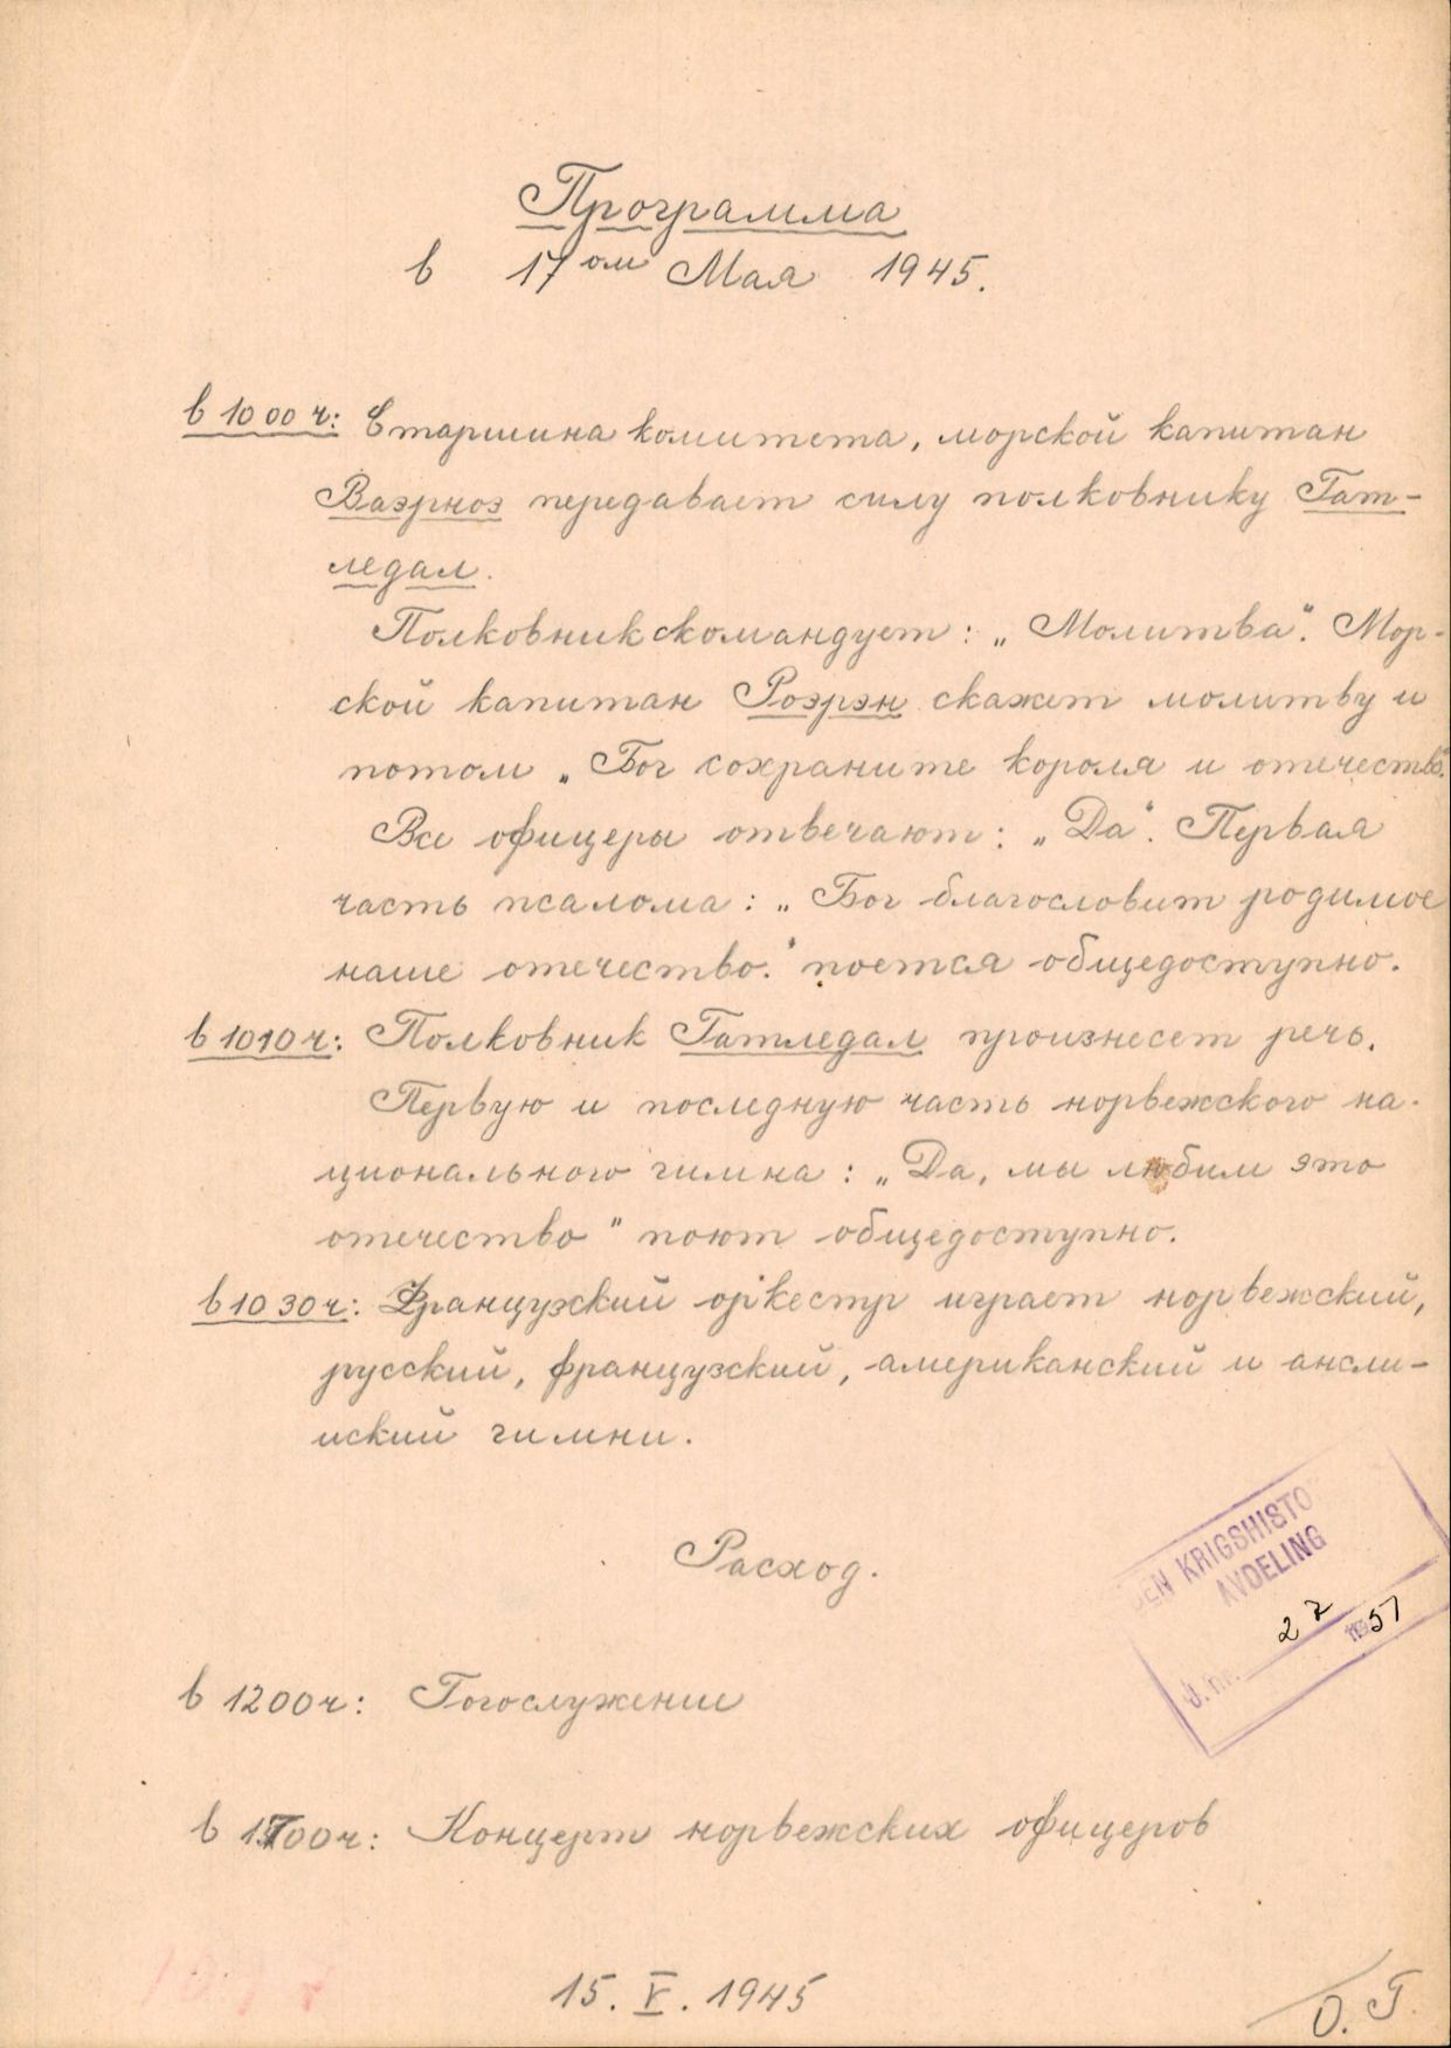 Программа
в 17ом Мая 1945.
в 10 00 ч: Старшина комитета, морской капитан
Ваэрноэ передавает силу полковнику Гат-
ледал.
Полковник скомандует: „Молитва“. Мор-
ской капитан Роэрэн скажет молитву и
потом „Бог сохраните короля и отечество.
Все офицеры отвечают: „Да“. Первая
часть псалома: „Бог благословит родимое
наше отечество.“ поется общедоступно.
в 10 10 ч: Полковник Гатледал произнесет речь.
Первую и последную часть норвежского на-
ционального гимна: „Да, мы любим это
отечество“ поют общедоступно.
в 10 30 ч: Французский оркестр играет норвежский,
русский, французский, американский и англи-
иский гимни.
Расход.
DEN KRIGSHISTO
AVDELING
J. nr. 27 1957
в 12 00 ч: Гогослужение
в 17 00 ч: Концерт норвежских офицеров
15. V. 1945
О. Г.